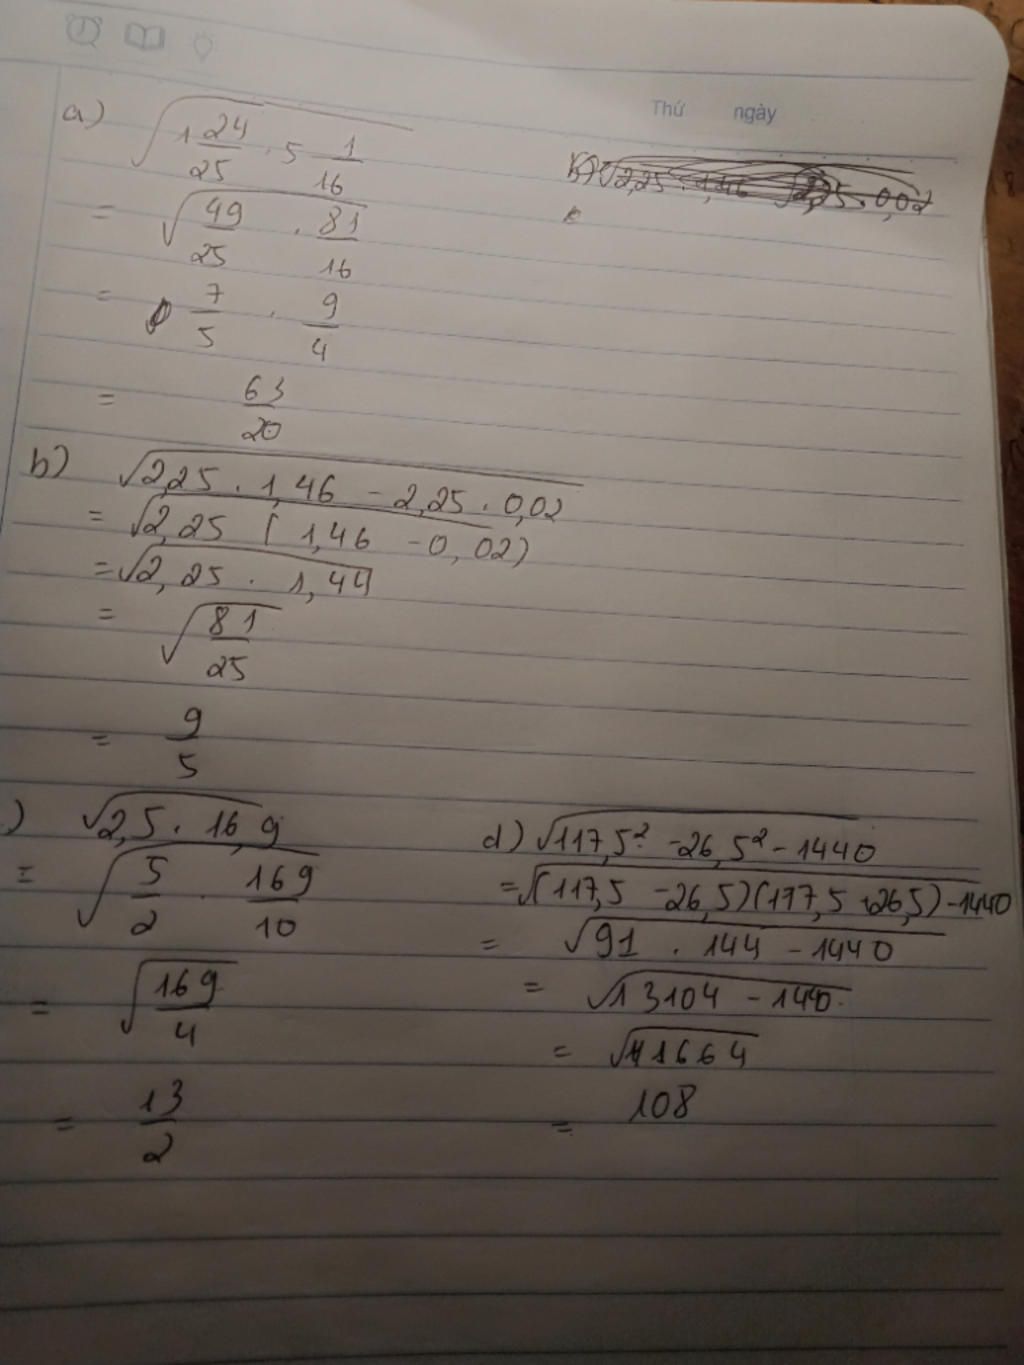 Thứ ngày
a) √(1 24/25 · 5 1/16)
= √(49/25 · 81/16)
= 7/5 · 9/4
= 63/20
b) √(2,25 · 1,46 - 2,25 · 0,02)
= √(2,25 (1,46 - 0,02))
= √(2,25 · 1,44)
= √(81/25)
= 9/5
) √(2,5 · 16,9)
= √(5/2 · 169/10)
= √(169/4)
= 13/2
d) √(117,5² - 26,5² - 1440)
= √((117,5 - 26,5)(117,5 + 26,5) - 1440)
= √(91 · 144 - 1440)
= √(13104 - 1440)
= √(11664)
= 108